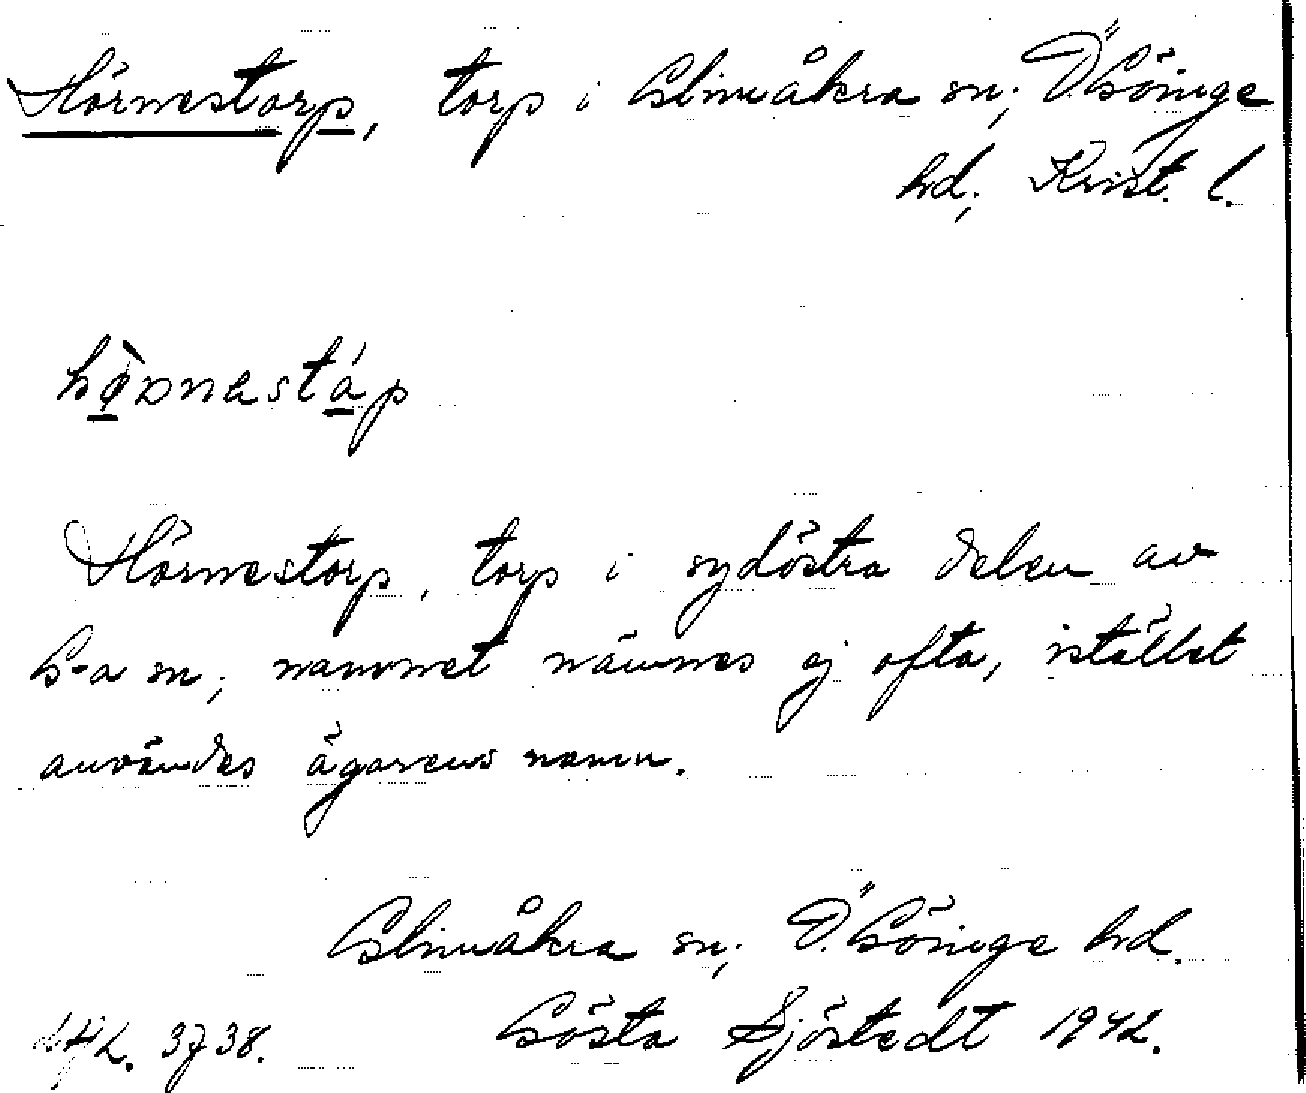 Hörnestorp, torp i Glimåkra sn; Ö Göinge
hd; Krist. l.
hö̀ɒnestáp
Hörnestorp, torp i sydöstra delen av
G-a sn; namnet nämnes ej ofta, istället
användes ägarens namn.
Glimåkra sn; Ö. Göinge hd.
3738. Gösta Sjöstedt 1942.